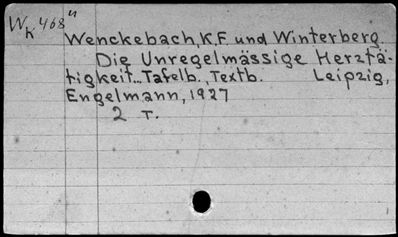 W K 468"
Wenckebach, K.F. und Winterberg.
Die Unregelmässige Herztä-
tigkeit... Tafelb., Textb. Leipzig,
Engelmann, 1927
2 T.